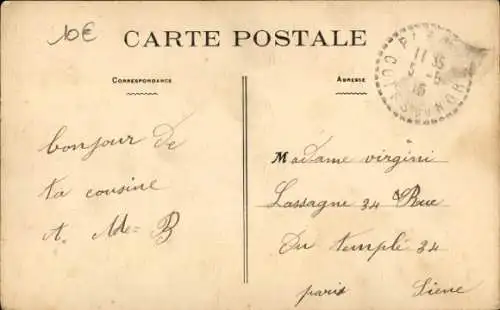 10€
CARTE POSTALE
CORRESPONDANCE
ADRESSE
11 35
3 - 5
15
bonjour de
ta cousine
Madame virgini
Lassagne 34 Rue
Du templé 34
paris